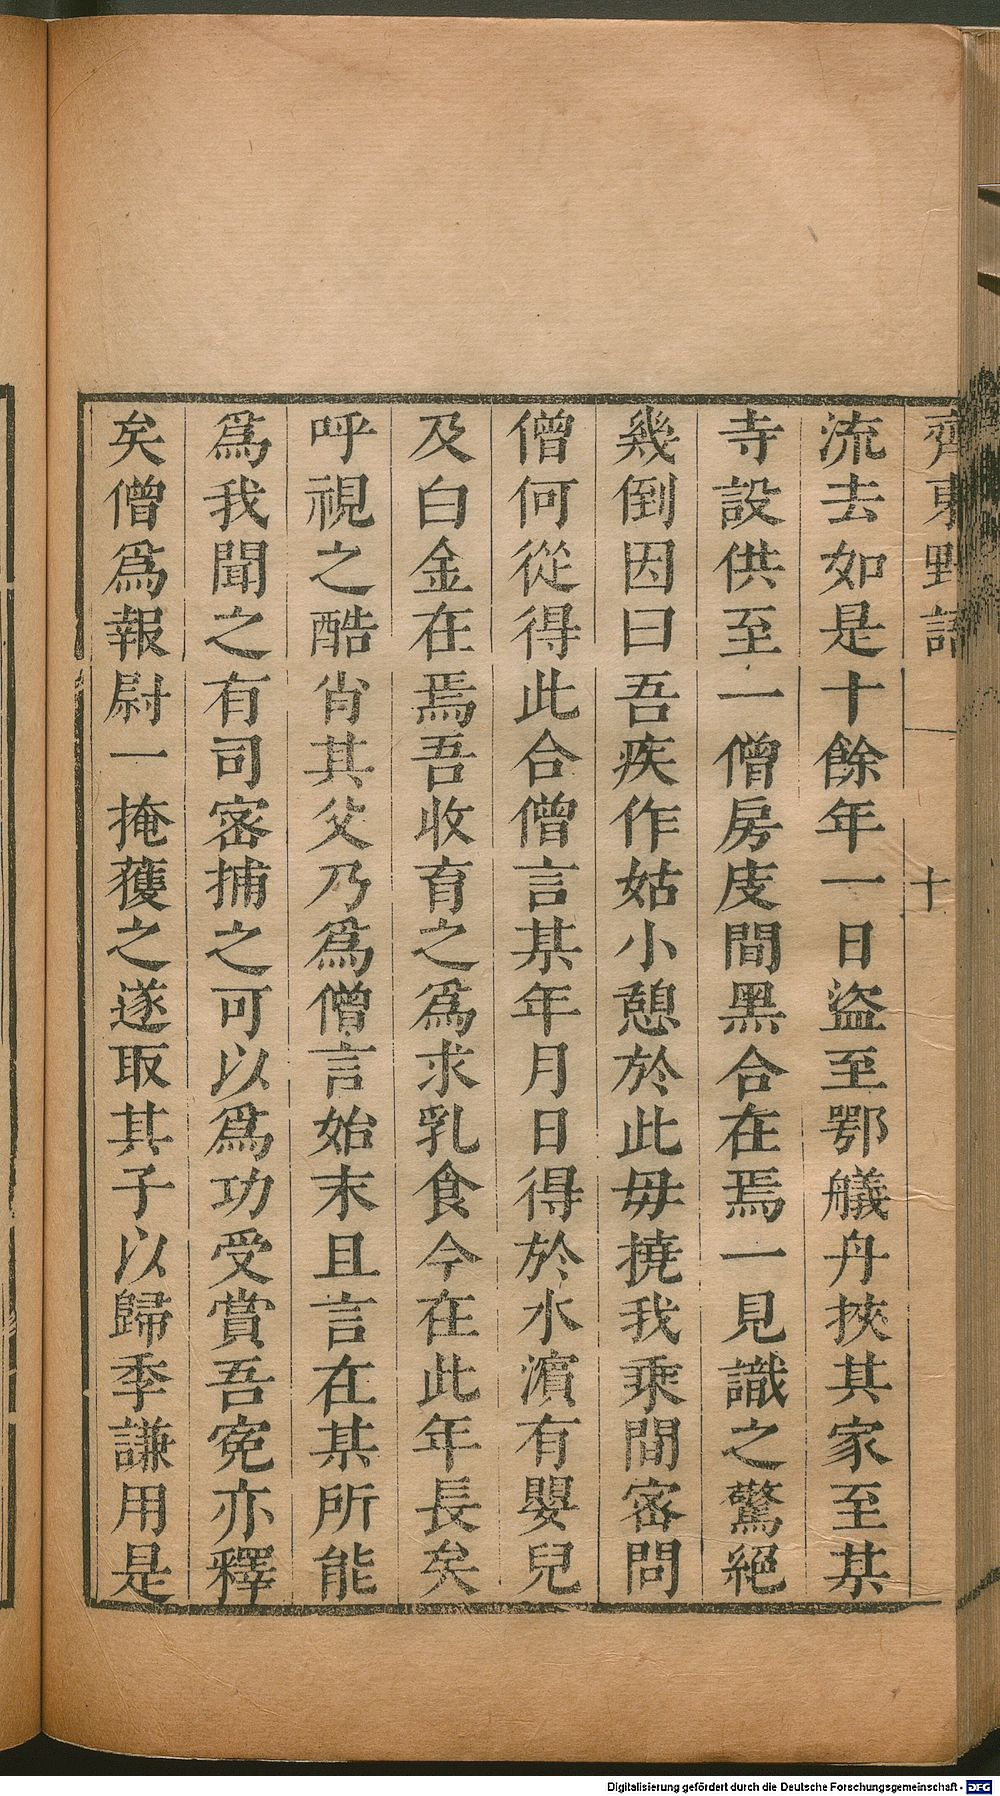 齊東野語
十
流去如是十餘年一日盜至鄂艤丹挾其家至某
寺設供至一僧房庋間黑合在焉一見識之驚絕
幾倒因曰吾疾作姑小憩於此毋撓我乘間密問
僧何從得此合僧言某年月日得於水濵有嬰兒
及白金在焉吾收育之爲求乳食今在此年長矣
呼視之酷肖其父乃爲僧言始末且言在某所能
爲我聞之有司密捕之可以爲功受賞吾寃亦釋
矣僧爲報尉一掩獲之遂取其子以歸季謙用是
Digitalisierung gefördert durch die Deutsche Forschungsgemeinschaft - DFG